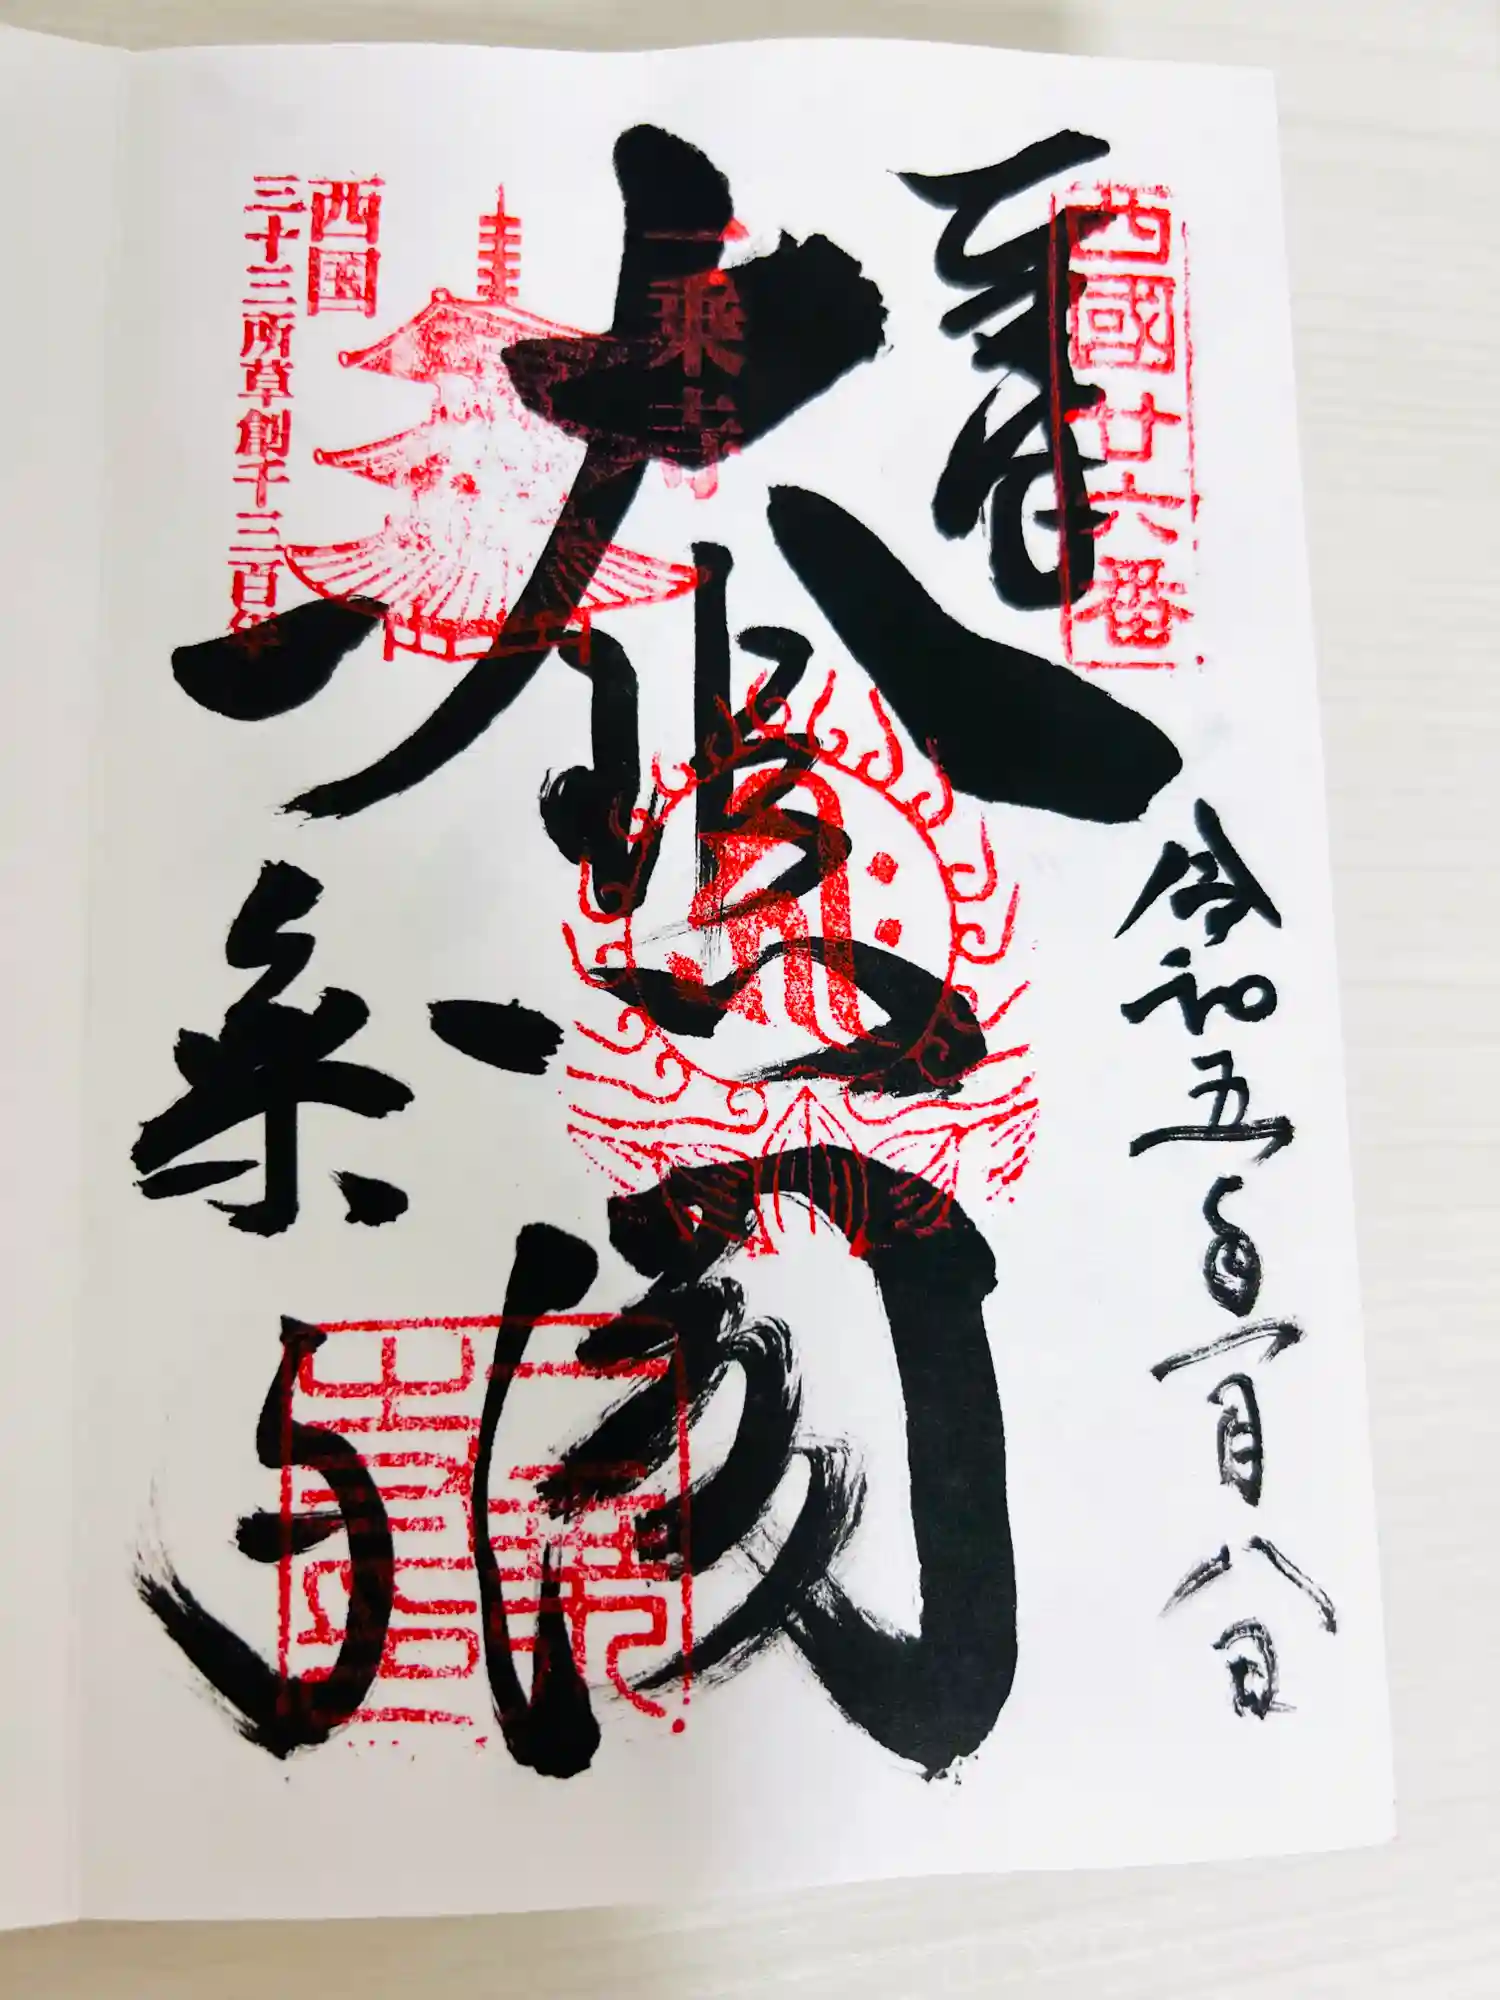 西國廿六番
奉拝
令和五年
月八日
大悲閣
一乗寺
西国
三十三所草創千三百年
一乗寺